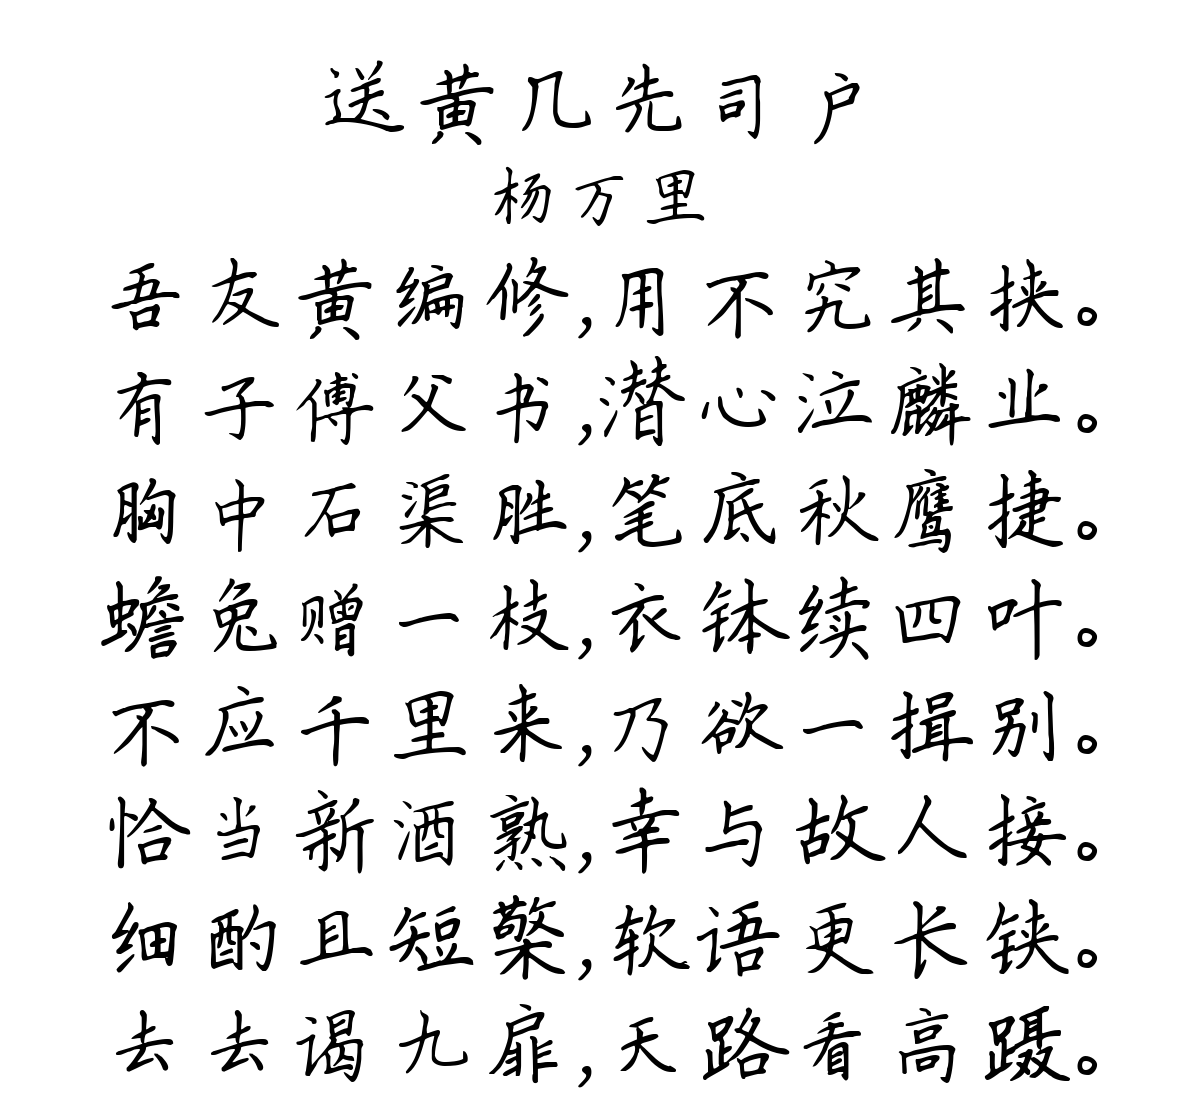 送黄几先司户
杨万里
吾友黄编修,用不究其挟。
有子傅父书,潜心泣麟业。
胸中石渠胜,笔底秋鹰捷。
蟾兔赠一枝,衣钵续四叶。
不应千里来,乃欲一揖别。
恰当新酒熟,幸与故人接。
细酌且短檠,软语更长铗。
去去谒九扉,天路看高蹑。